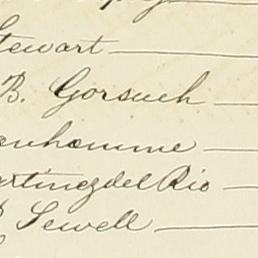 Stewart
B. Gorsuch
enhomme
artinez del Rio
Sewell